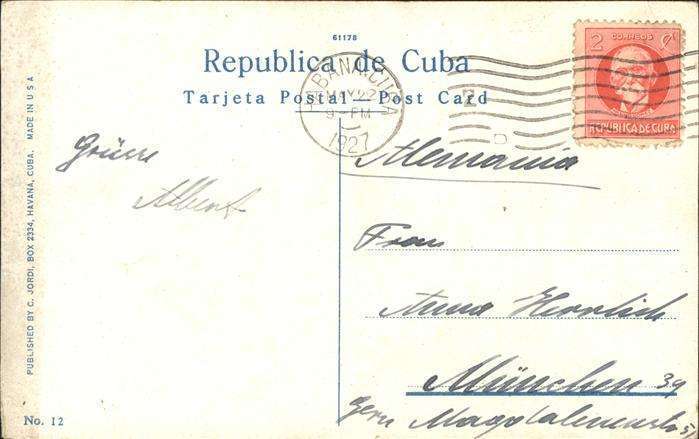 61178
Republica de Cuba
Tarjeta Postal — Post Card
HABANA, CUBA
MAY 22
9 - PM
1927
2 CORREOS ¢
REPUBLICA DE CUBA
Grüsse
Albert
Alemania
Frau
Anna Herrlich
München 39
PUBLISHED BY C. JORDI, BOX 2334, HAVANA, CUBA. MADE IN U S A
No. 12